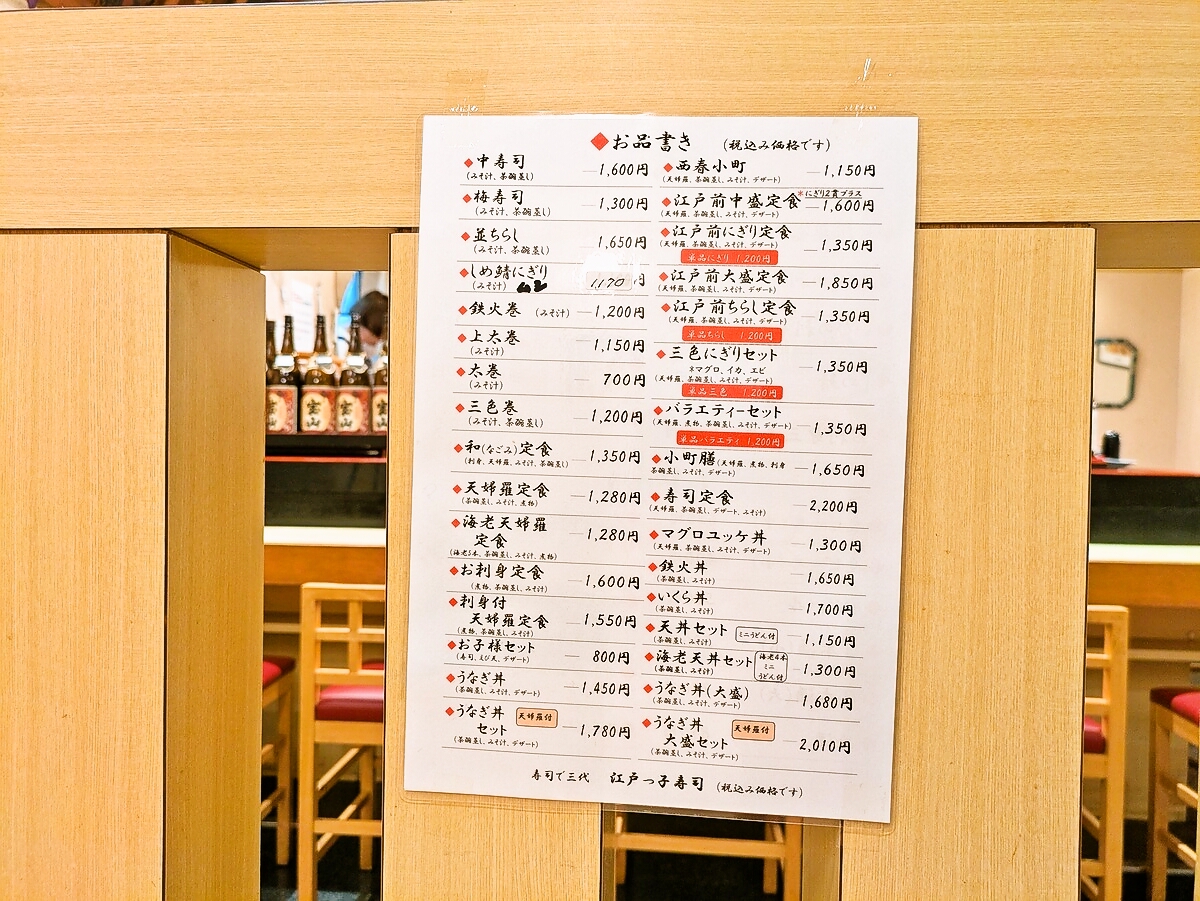 ◆お品書き (税込み価格です)
◆中寿司 1,600円
(みそ汁、茶碗蒸し)
◆梅寿司 1,300円
(みそ汁、茶碗蒸し)
◆並ちらし 1,650円
(みそ汁、茶碗蒸し)
◆しめ鯖にぎり 1,170円
(みそ汁)
◆鉄火巻 (みそ汁) 1,200円
◆上太巻 1,150円
(みそ汁)
◆太巻 700円
(みそ汁)
◆三色巻 1,200円
(みそ汁、茶碗蒸し)
◆和(なごみ)定食 1,350円
(刺身、天婦羅、みそ汁、茶碗蒸し)
◆天婦羅定食 1,280円
(茶碗蒸し、みそ汁、煮物)
◆海老天婦羅
定食 1,280円
(海老5本、茶碗蒸し、みそ汁、煮物)
◆お刺身定食 1,600円
(煮物、茶碗蒸し、みそ汁)
◆刺身付
天婦羅定食 1,550円
(煮物、茶碗蒸し、みそ汁)
◆お子様セット 800円
(寿司、えび天、デザート)
◆うなぎ丼 1,450円
(茶碗蒸し、みそ汁、デザート)
◆うなぎ丼
セット 天婦羅付 1,780円
(茶碗蒸し、みそ汁、デザート)
◆西春小町 1,150円
(天婦羅、茶碗蒸し、みそ汁、デザート)
*にぎり2貫プラス
◆江戸前中盛定食 1,600円
(天婦羅、茶碗蒸し、みそ汁、デザート)
◆江戸前にぎり定食 1,350円
(天婦羅、茶碗蒸し、みそ汁、デザート)
単品にぎり 1,200円
◆江戸前大盛定食 1,850円
(天婦羅、茶碗蒸し、みそ汁、デザート)
◆江戸前ちらし定食 1,350円
(天婦羅、茶碗蒸し、みそ汁、デザート)
単品ちらし 1,200円
◆三色にぎりセット 1,350円
*マグロ、イカ、エビ
(天婦羅、茶碗蒸し、みそ汁、デザート)
単品三色 1,200円
◆バラエティーセット 1,350円
(天婦羅、煮物、茶碗蒸し、みそ汁、デザート)
単品バラエティ 1,200円
◆小町膳(天婦羅、煮物、刺身 1,650円
茶碗蒸し、みそ汁、デザート)
◆寿司定食 2,200円
(天婦羅、茶碗蒸し、デザート、みそ汁)
◆マグロユッケ丼 1,300円
(天婦羅、茶碗蒸し、みそ汁、デザート)
◆鉄火丼 1,650円
(茶碗蒸し、みそ汁)
◆いくら丼 1,700円
(茶碗蒸し、みそ汁)
◆天丼セット ミニうどん付 1,150円
(茶碗蒸し、みそ汁)
◆海老天丼セット 海老6本 ミニ うどん付 1,300円
(茶碗蒸し、みそ汁)
◆うなぎ丼(大盛) 1,680円
(茶碗蒸し、みそ汁、デザート)
◆うなぎ丼
大盛セット 天婦羅付 2,010円
(茶碗蒸し、みそ汁、デザート)
寿司で三代 江戸っ子寿司 (税込み価格です)
宝山
宝山